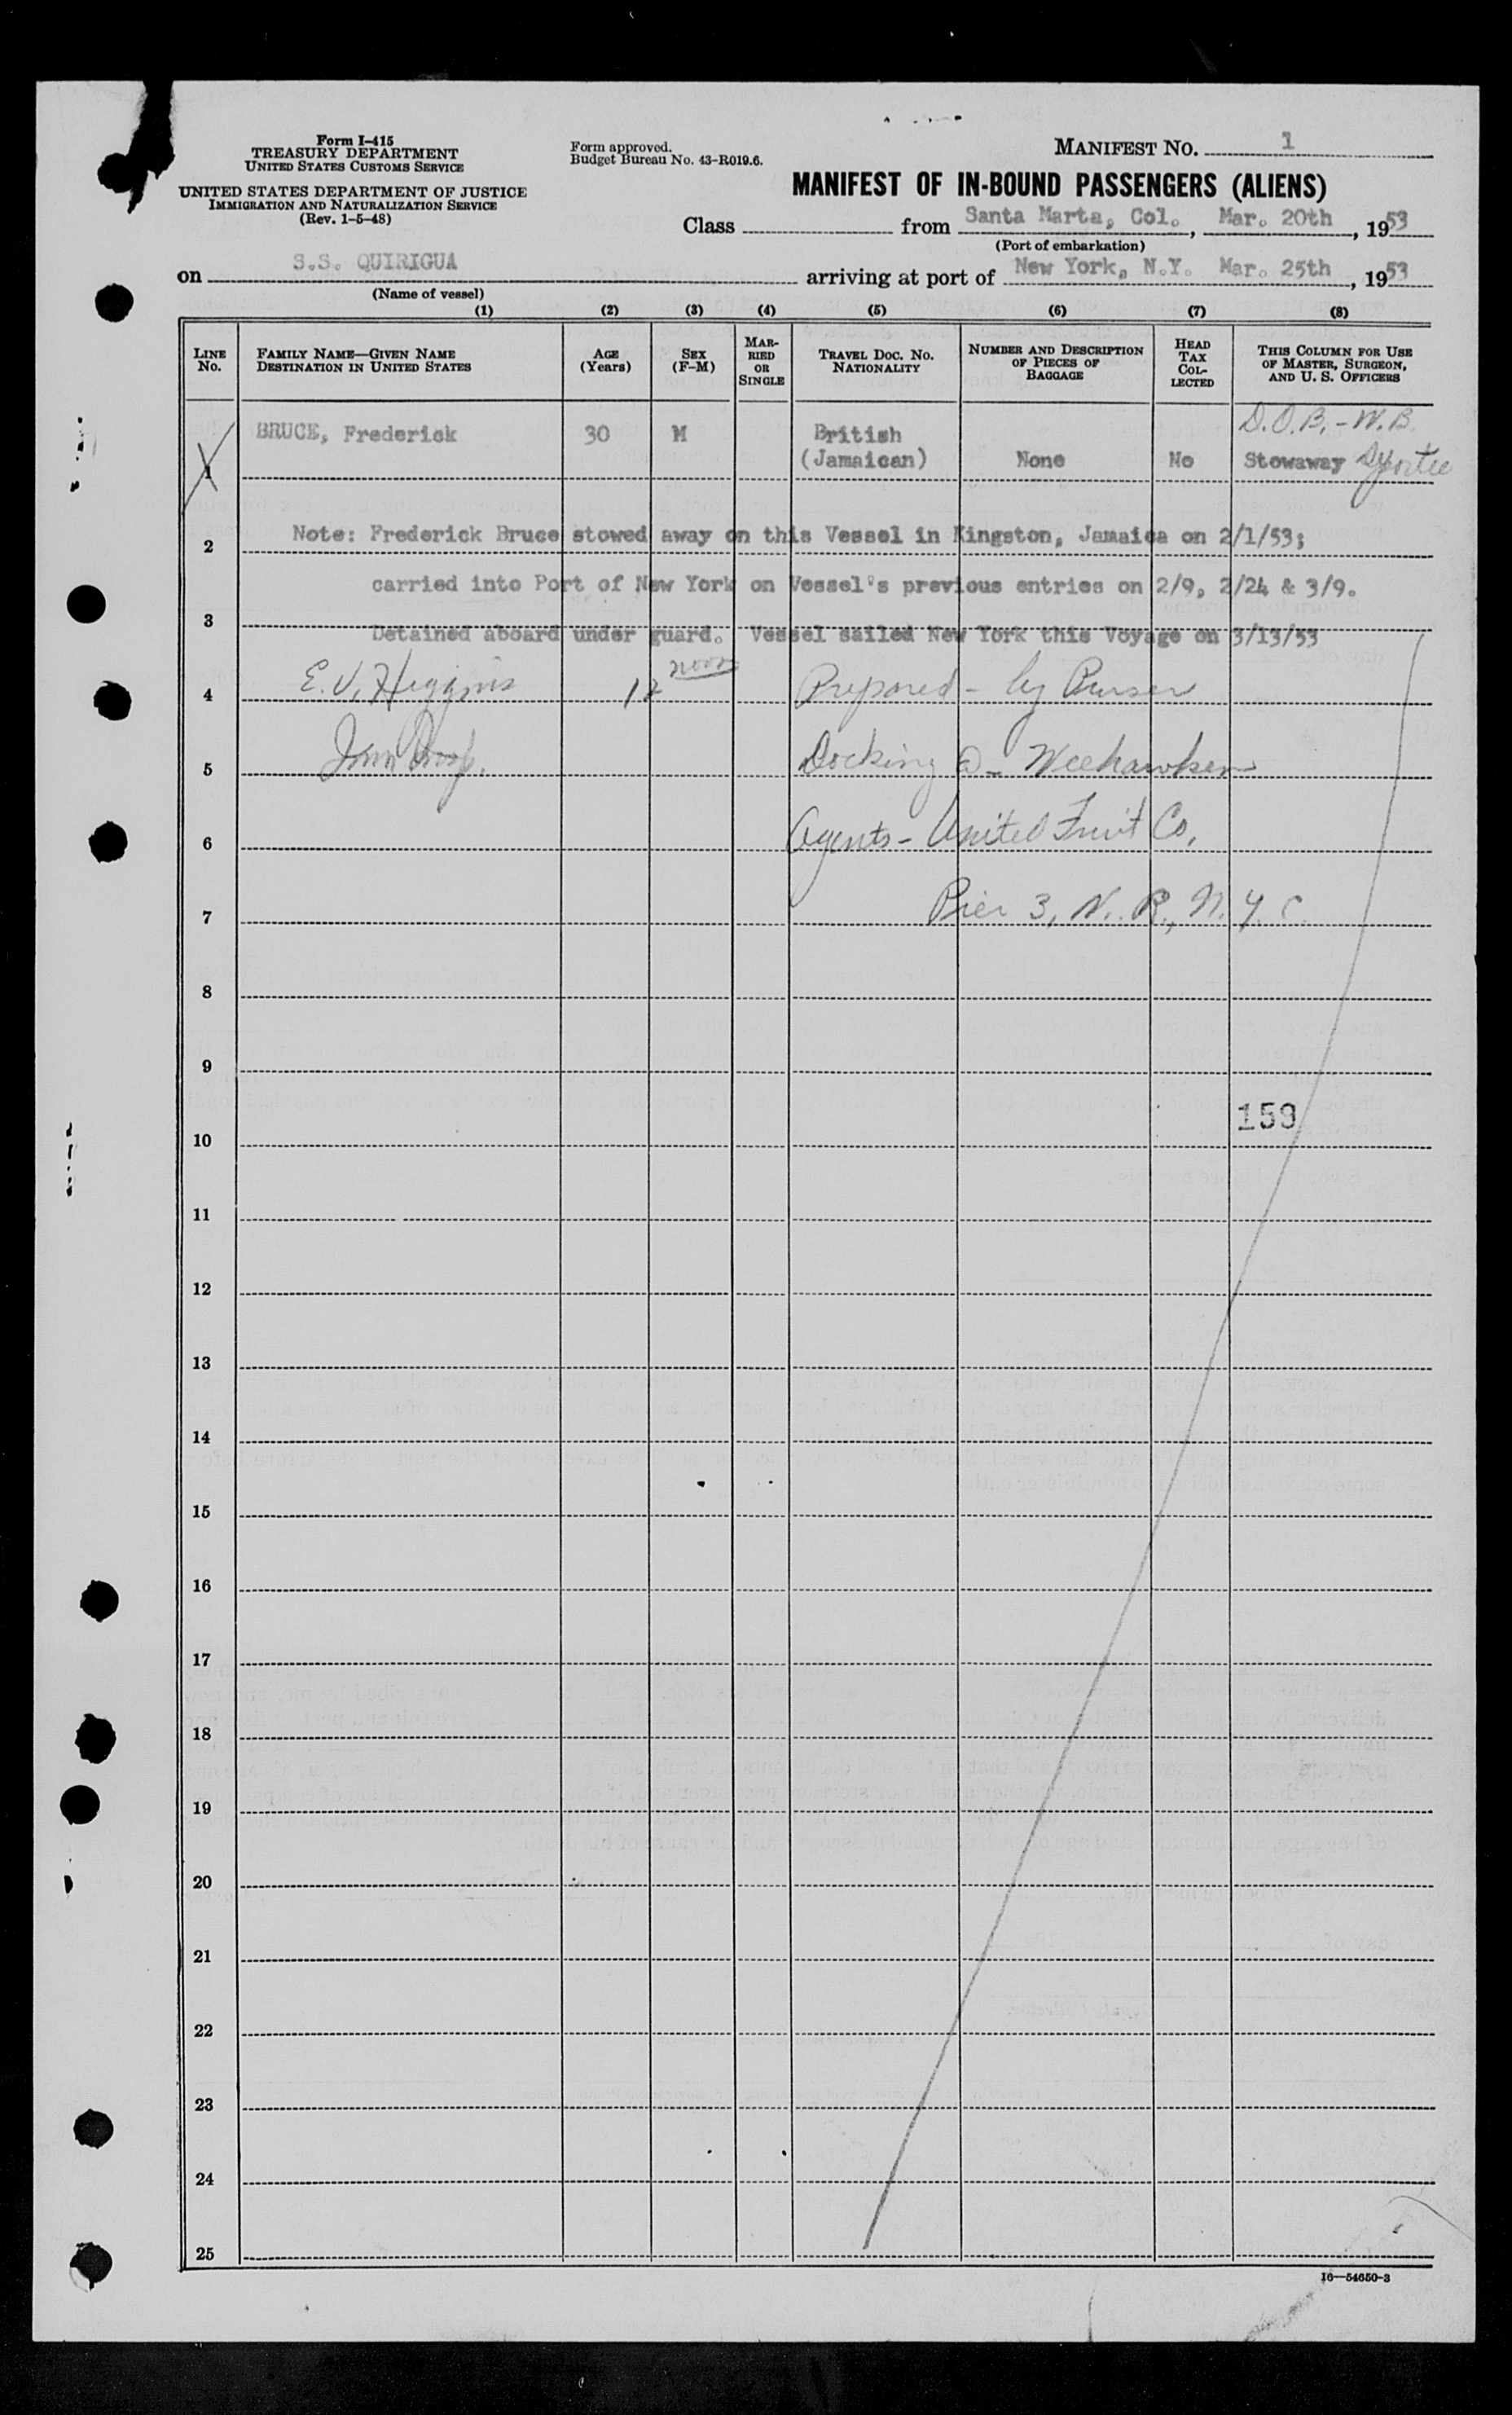 Form I-415
TREASURY DEPARTMENT
UNITED STATES CUSTOMS SERVICE
UNITED STATES DEPARTMENT OF JUSTICE
IMMIGRATION AND NATURALIZATION SERVICE
(Rev. 1-5-48)
Form approved.
Budget Bureau No. 43-R019.6.
MANIFEST NO. 1
MANIFEST OF IN-BOUND PASSENGERS (ALIENS)
Class from Santa Marta, Col., Mar. 20th, 1953
(Port of embarkation)
on S.S. QUIRIGUA arriving at port of New York, N.Y. Mar. 25th, 1953
(Name of vessel)
(1) (2) (3) (4) (5) (6) (7) (8)
LINE No.
FAMILY NAME—GIVEN NAME
DESTINATION IN UNITED STATES
AGE (Years)
SEX (F-M)
MARRIED OR SINGLE
TRAVEL DOC. NO. NATIONALITY
NUMBER AND DESCRIPTION OF PIECES OF BAGGAGE
HEAD TAX COLLECTED
THIS COLUMN FOR USE OF MASTER, SURGEON, AND U. S. OFFICERS
D.O.B.-W.B.
1 BRUCE, Frederick 30 M British (Jamaican) None No Stowaway
2 Note: Frederick Bruce stowed away on this Vessel in Kingston, Jamaica on 2/1/53;
carried into Port of New York on Vessel's previous entries on 2/9, 2/24 & 3/9.
3 Detained aboard under guard. Vessel sailed New York this Voyage on 3/13/53
4 E. V. Higgins 12 noon Prepared - by Purser
5 Docking @ - Weehawken
6 Agents - United Fruit Co.
7 Pier 3, N. R., N. Y. C.
8
9
159
10
11
12
13
14
15
16
17
18
19
20
21
22
23
24
25
16—54650-3